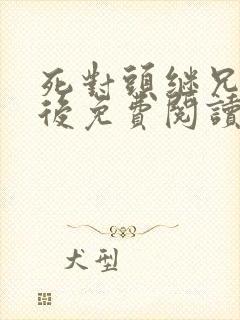 死對頭繼兄
後免費閱讀
犬型